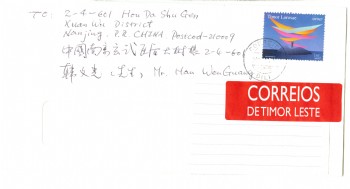 TO: 2-4-601 Hou Da Shu Gen
Xuan Wu District
Nanjing. P.R. CHINA Postcod-210009
中国南京玄武区厚大树根 2-4-601
韩文 (先生) Mr. Han WenGuang
Timor Leste
CORREIOS
DE TIMOR LESTE